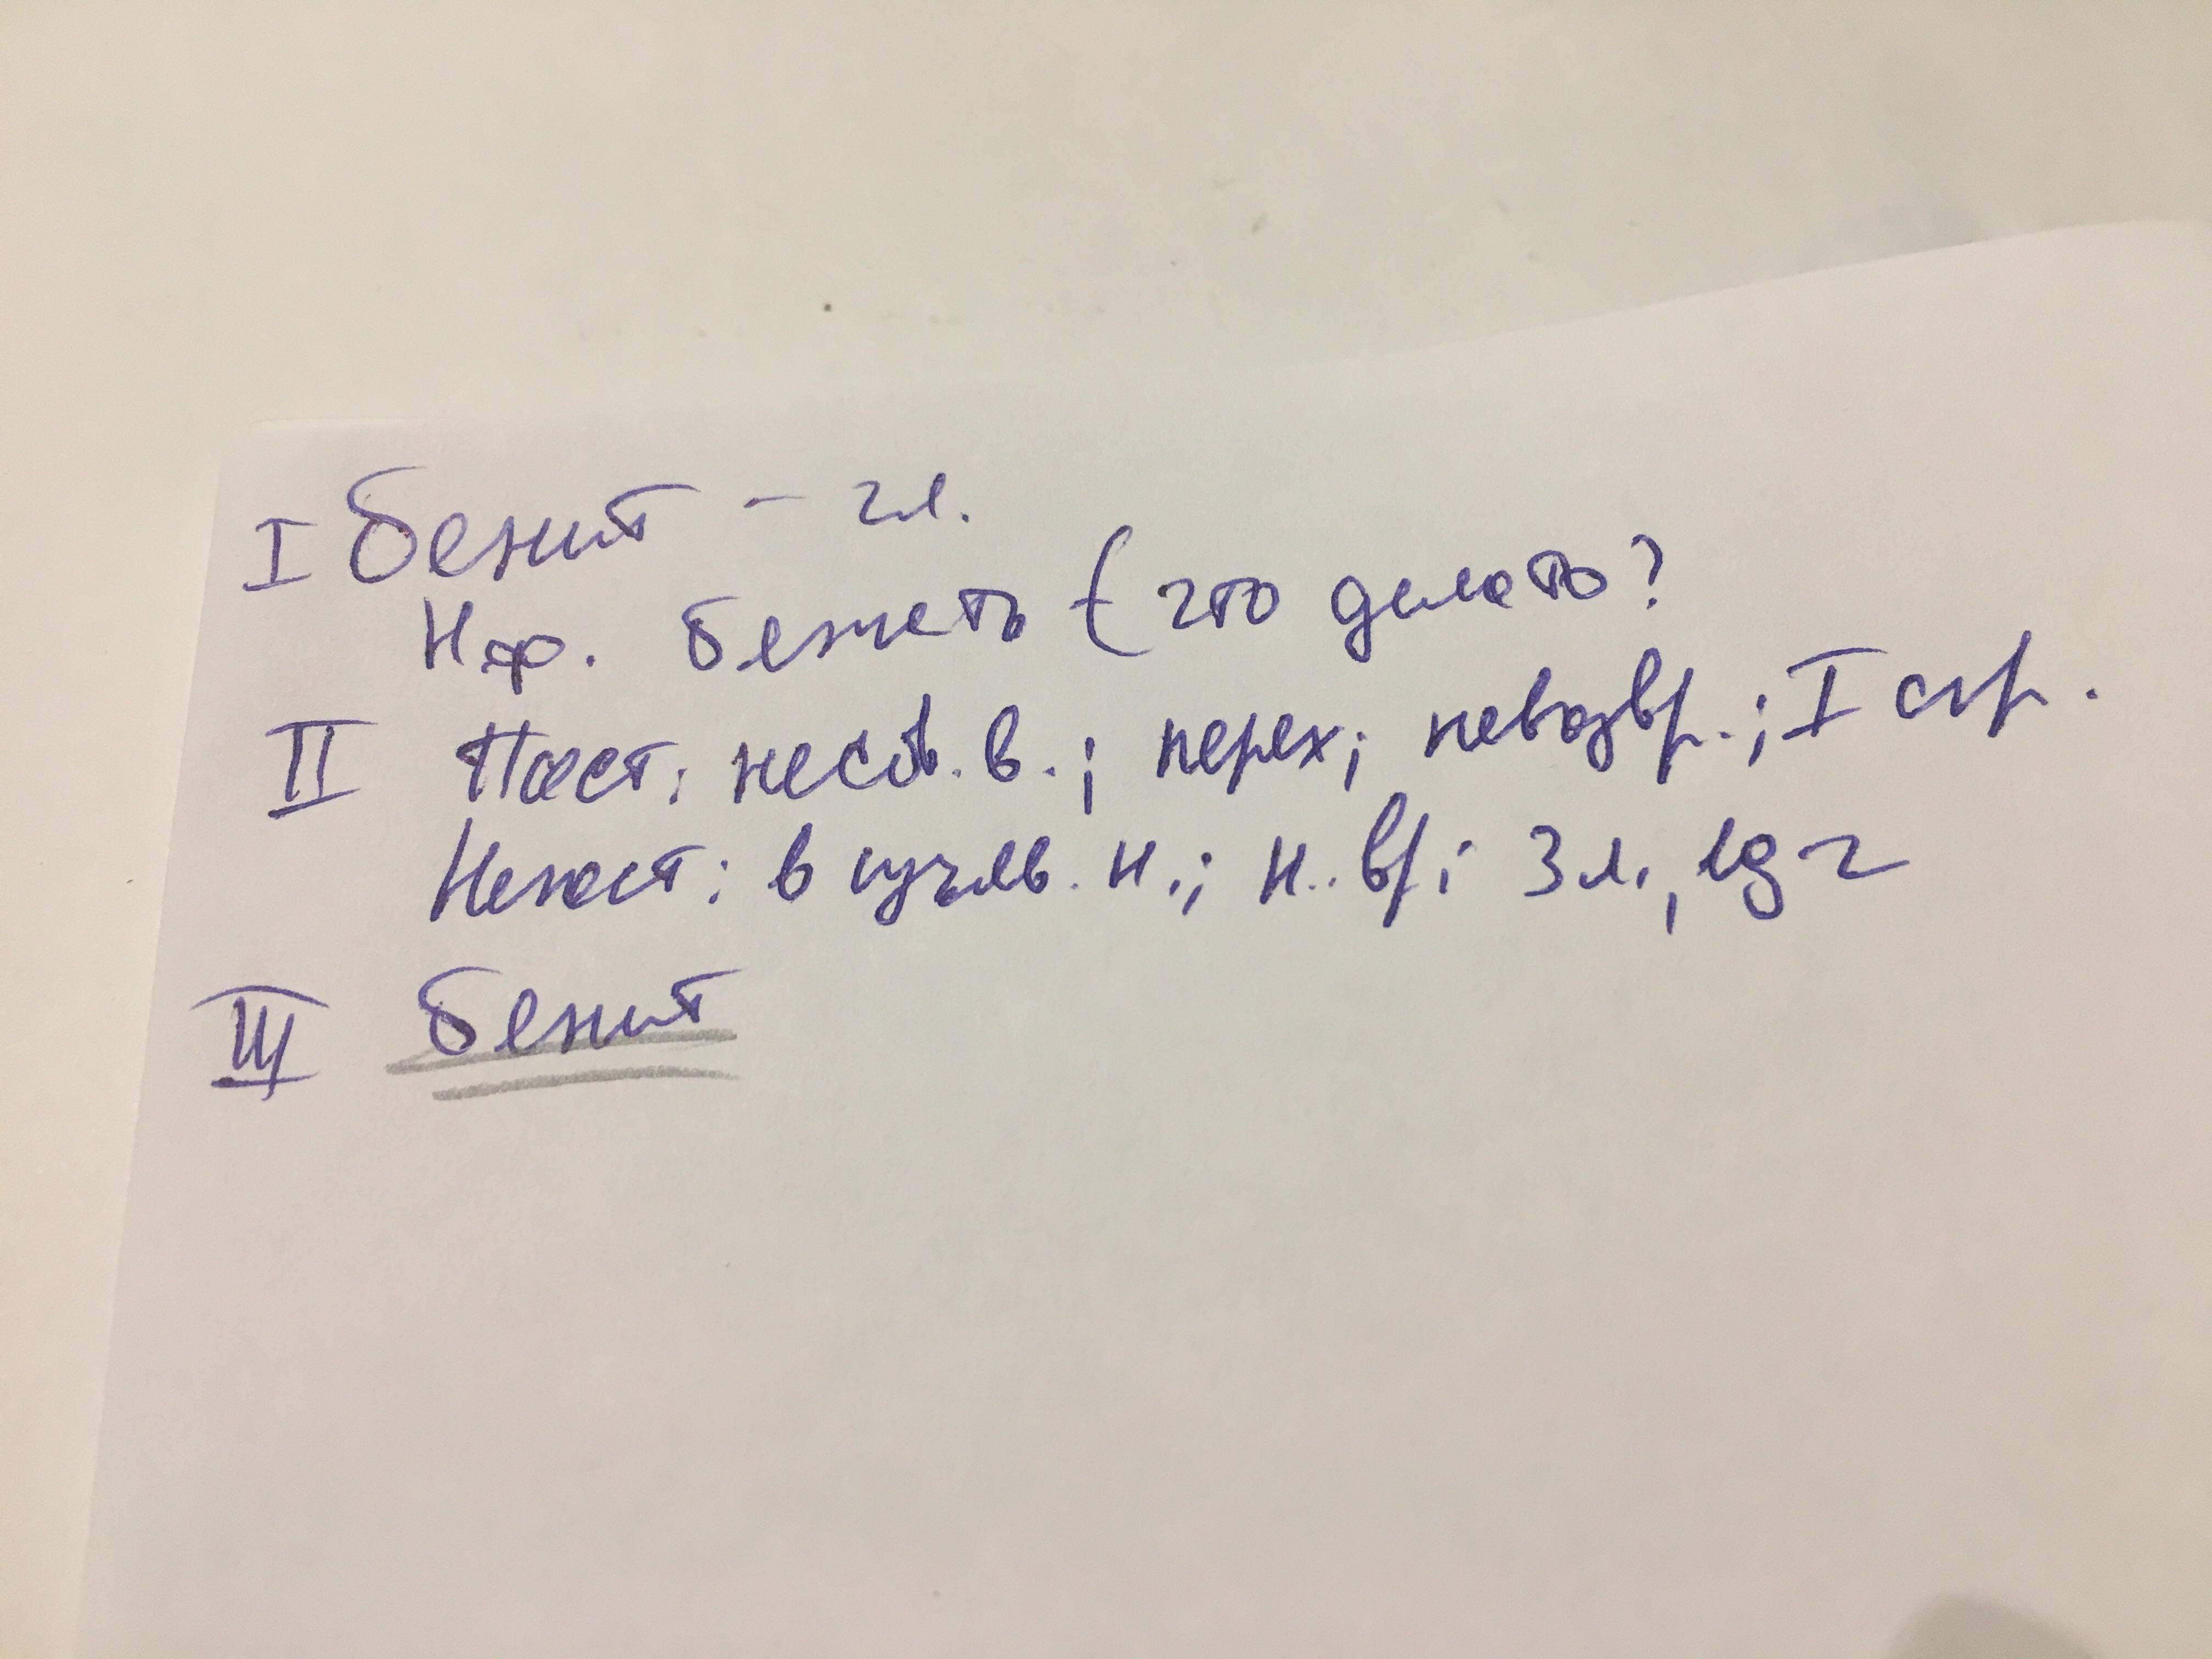 I бежит - гл.
Н.ф. бежать (что делать?
II Пост: несов. в.; перех; невозвр.; I спр.
Непост: в изъяв. н.; н. вр; 3 л., ед ч
III бежит